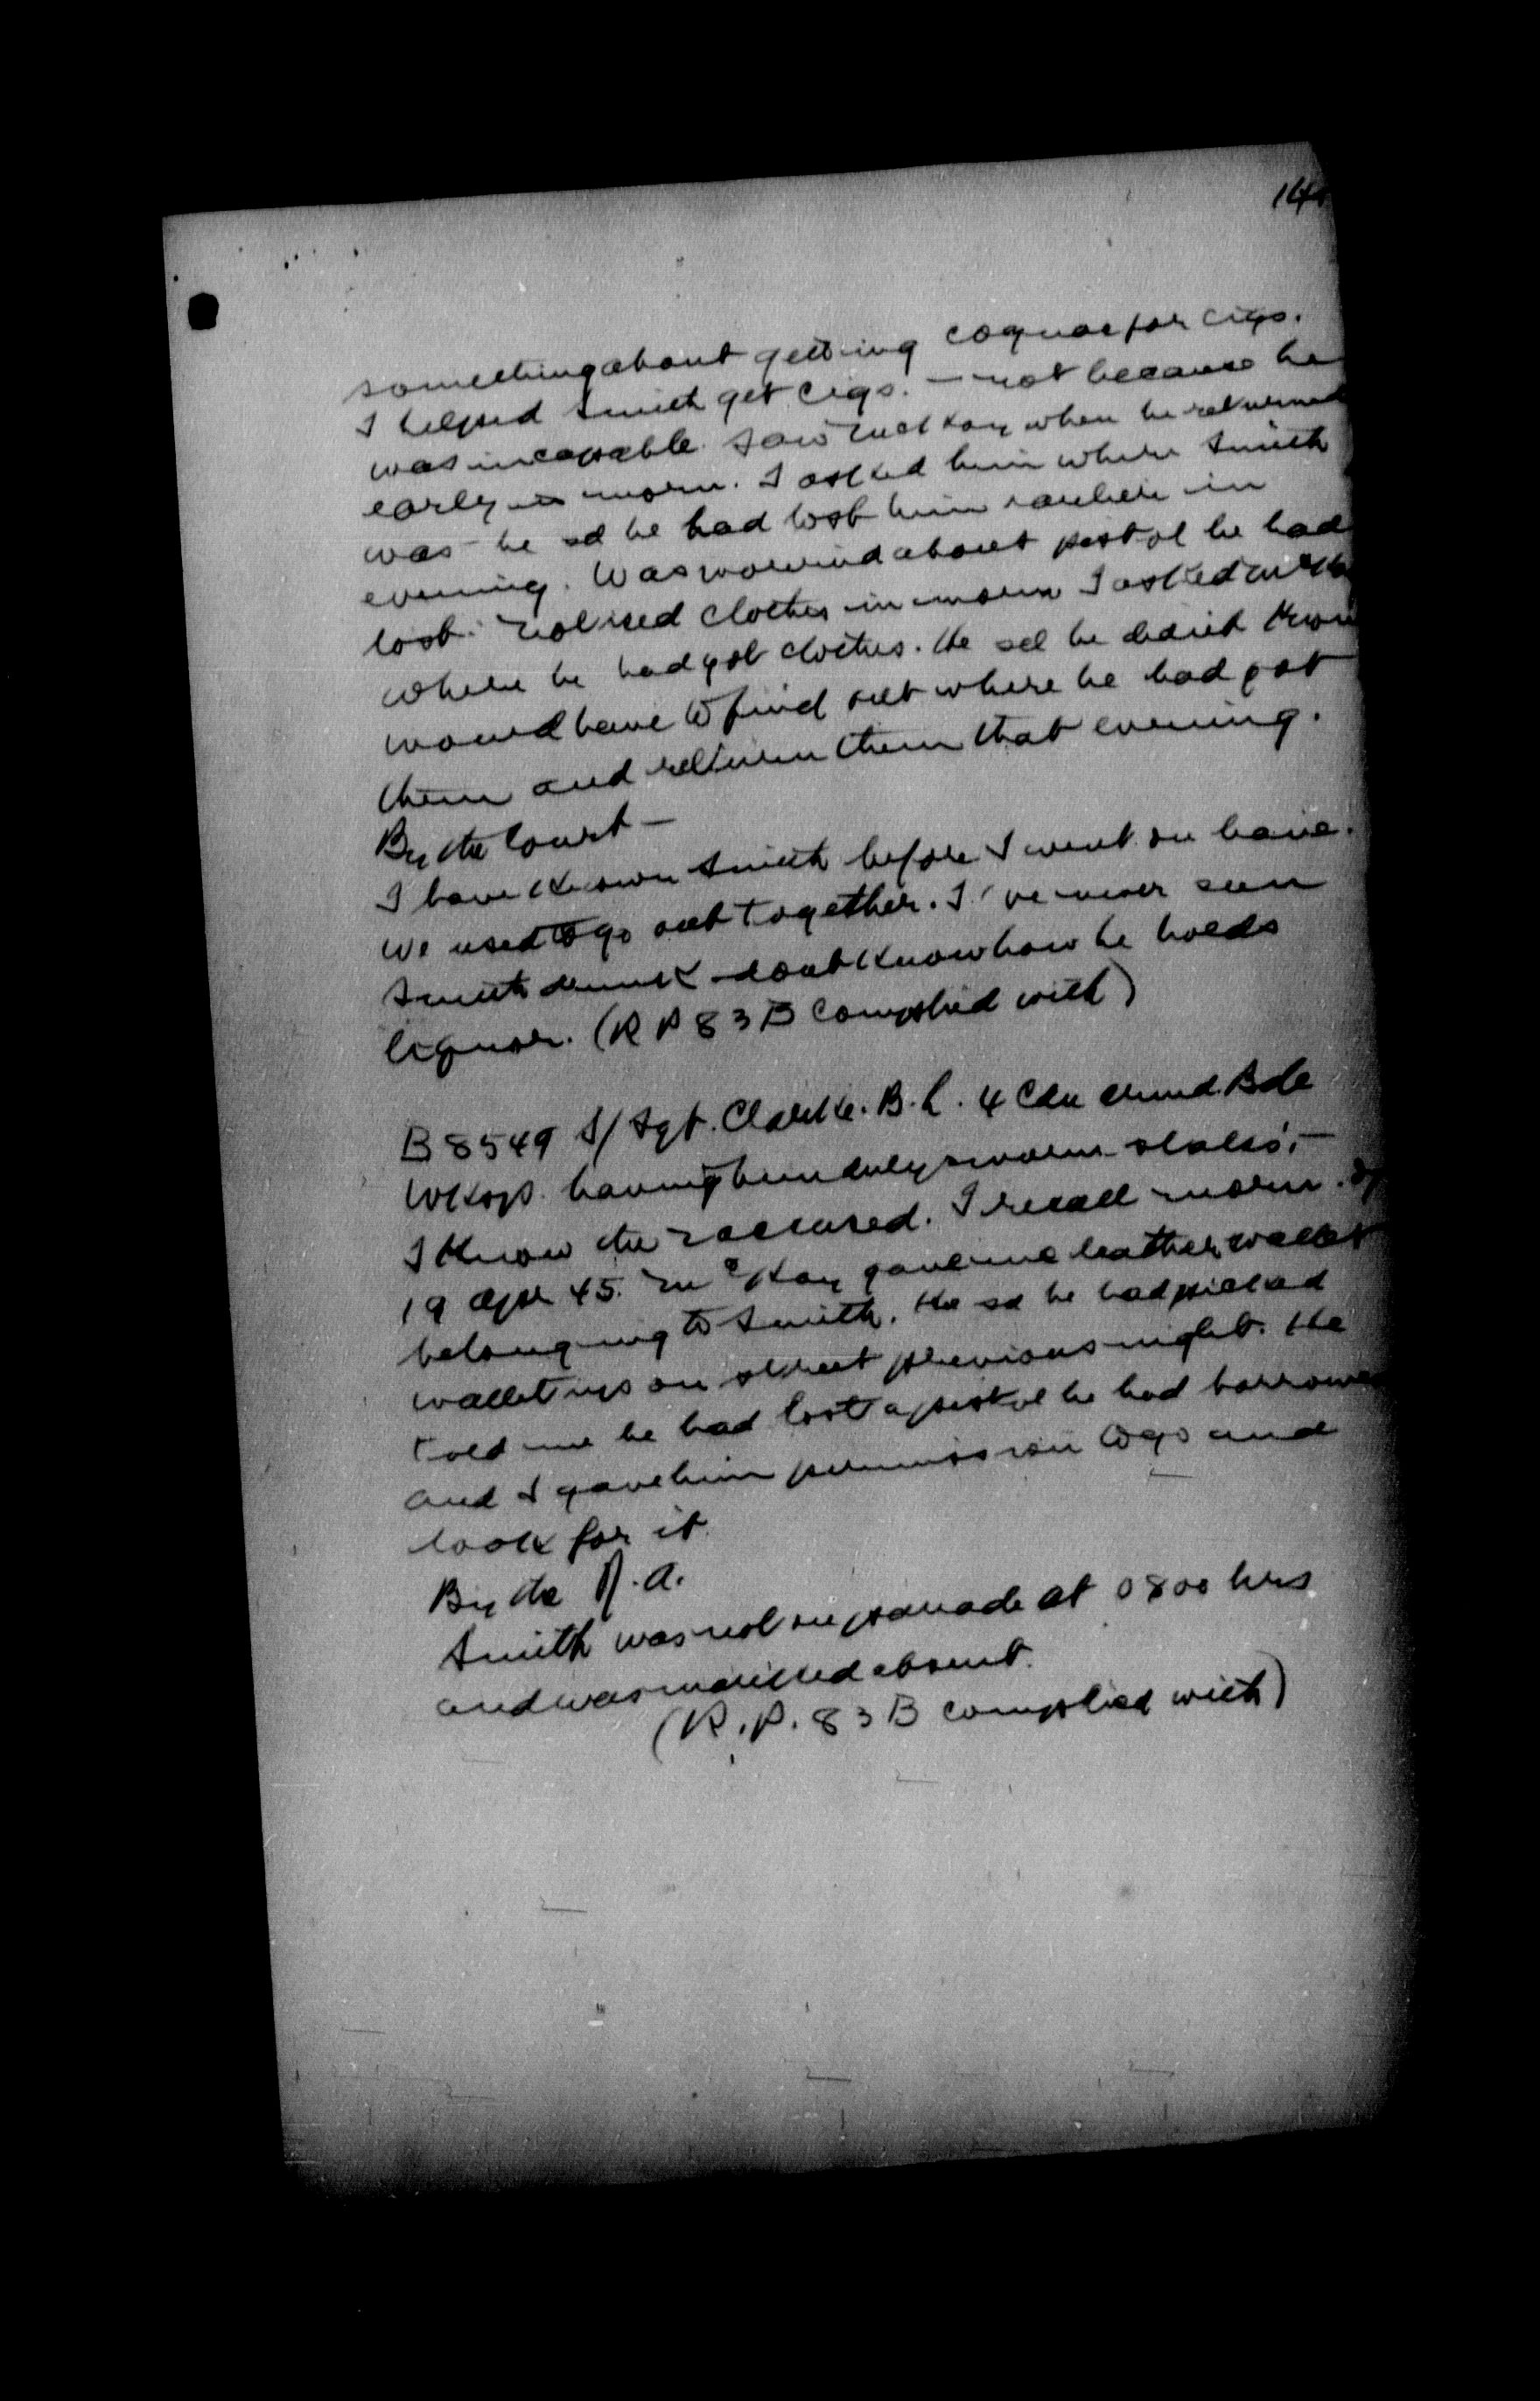 14
something about getting cognac for cigs.
I helped Smith get cigs. — not because he
was incapable. Saw McKay when he returned
early in morn. I asked him where Smith
was he sd he had lost him earlier in
evening. Was worried about pistol he had
lost. Noticed clothes in morn I asked McKay
where he had got clothes. He sd he didnt know
would have to find out where he had got
them and return them that evening.
By the Court —
I have known Smith before I went on leave.
We used to go out together. I've never seen
Smith drunk dont know how he holds
liquor. (R P 83 B complied with)
B8549 S/Sgt. Clarke. B.L. 4 Cdn Armd. Bde
Wksps. having been duly sworn states:—
I know the accused. I recall morn. of
19 Apr 45. McKay gave me leather wallet
belonging to Smith. He sd he had picked
wallet up on street previous night. He
told me he had lost a pistol he had borrowed
and I gave him permission to go and
look for it.
By the J.A.
Smith was not on parade at 0800 hrs
and was marked absent.
(R.P. 83 B complied with)